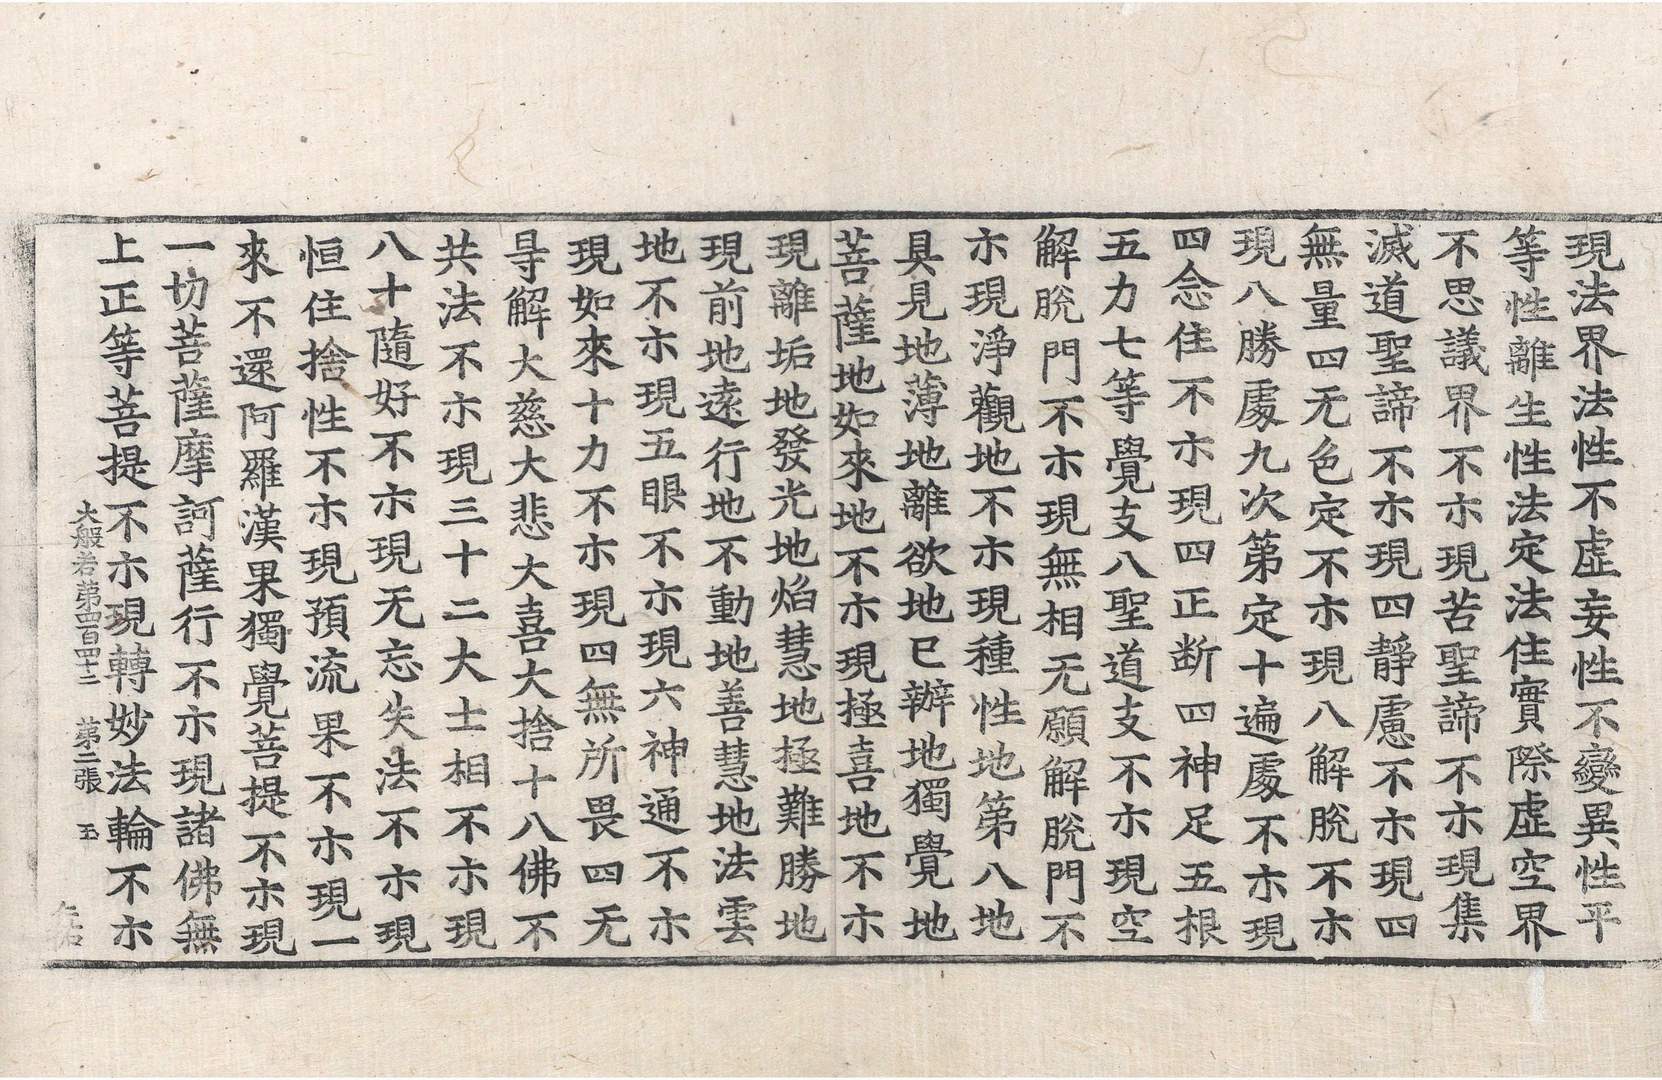 現法界法性不虛妄性不變異性平
等性離生性法定法住實際虛空界
不思議界不示現苦聖諦不示現集
滅道聖諦不示現四靜慮不示現四
無量四无色定不示現八解脫不示
現八勝處九次第定十遍處不示現
四念住不示現四正断四神足五根
五力七等覺支八聖道支不示現空
解脫門不示現無相无願解脫門不
示現淨觀地不示現種性地第八地
具見地薄地離欲地已辦地獨覺地
菩薩地如來地不示現極喜地不示
現離垢地發光地焰慧地極難勝地
現前地遠行地不動地善慧地法雲
地不示現五眼不示現六神通不示
現如來十力不示現四無所畏四无
㝵解大慈大悲大喜大捨十八佛不
共法不示現三十二大士相不示現
八十隨好不示現无忘失法不示現
恒住捨性不示現預流果不示現一
來不還阿羅漢果獨覺菩提不示現
一切菩薩摩訶薩行不示現諸佛無
上正等菩提不示現轉妙法輪不示
大般若第四百四十二 第二張 玉